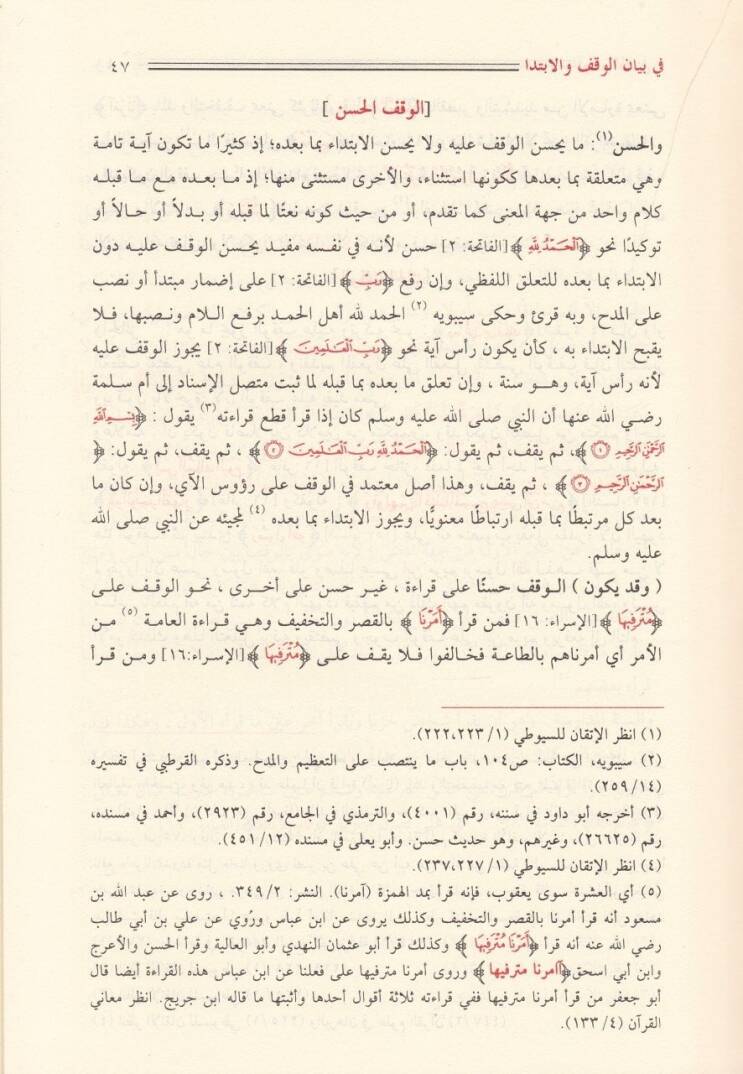 في بيان الوقف والابتدا ٤٧
[الوقف الحسن ]
والحسن(١): ما يحسن الوقف عليه ولا يحسن الابتداء بما بعده؛ إذ كثيرًا ما تكون آية تامة
وهي متعلقة بما بعدها ككونها استثناء، والأخرى مستثنى منها؛ إذ ما بعده مع ما قبله
كلام واحد من جهة المعنى كما تقدم، أو من حيث كونه نعتًا لما قبله أو بدلاً أو حالاً أو
توكيدًا نحو ﴿اَلْحَمْدُ لِلَّهِ﴾[الفاتحة: ٢] حسن لأنه في نفسه مفيد يحسن الوقف عليه دون
الابتداء بما بعده للتعلق اللفظي، وإن رفع ﴿رَبِّ﴾[الفاتحة: ٢] على إضمار مبتدأ أو نصب
على المدح، وبه قرئ وحكى سيبويه (٢) الحمد لله أهل الحمد برفع اللام ونصبها، فلا
يقبح الابتداء به ، كأن يكون رأس آية نحو ﴿رَبِّ الْعَالَمِينَ ﴾[الفاتحة: ٢] يجوز الوقف عليه
لأنه رأس آية، وهو سنة ، وإن تعلق ما بعده بما قبله لما ثبت متصل الإسناد إلى أم سلمة
رضي الله عنها أن النبي صلى الله عليه وسلم كان إذا قرأ قطع قراءته(٣) يقول : ﴿بِسْمِ اللَّهِ
الرَّحْمَٰنِ الرَّحِيمِ ١﴾، ثم يقف، ثم يقول: ﴿الْحَمْدُ لِلَّهِ رَبِّ الْعَالَمِينَ ٢﴾ ، ثم يقف، ثم يقول: ﴿
الرَّحْمَٰنِ الرَّحِيمِ ٣﴾ ، ثم يقف، وهذا أصل معتمد في الوقف على رؤوس الآي، وإن كان ما
بعد كل مرتبطًا بما قبله ارتباطًا معنويًّا، ويجوز الابتداء بما بعده (٤) لمجيئه عن النبي صلى الله
عليه وسلم.
( وقد يكون ) الوقف حسنًا على قراءة ، غير حسن على أخرى ، نحو الوقف على
﴿مُتْرَفِيهَا ﴾[الإسراء: ١٦] فمن قرأ ﴿أَمَرْنَا ﴾ بالقصر والتخفيف وهي قراءة العامة (٥) من
الأمر أي أمرناهم بالطاعة فخالفوا فلا يقف على ﴿مُتْرَفِيهَا ﴾[الإسراء:١٦] ومن قرأ
(١) انظر الإتقان للسيوطي (١/ ٢٢٢،٢٢٣).
(٢) سيبويه، الكتاب: ص١٠٤، باب ما ينتصب على التعظيم والمدح. وذكره القرطبي في تفسيره
(١٤/ ٢٥٩).
(٣) أخرجه أبو داود في سننه، رقم (٤٠٠١)، والترمذي في الجامع، رقم (٢٩٢٣)، وأحمد في مسنده،
رقم (٢٦٦٢٥)، وغيرهم، وهو حديث حسن. وأبو يعلى في مسنده (١٢/ ٤٥١).
(٤) انظر الإتقان للسيوطي (١/ ٢٣٧،٢٢٧).
(٥) أي العشرة سوى يعقوب، فإنه قرأ بمد الهمزة (آمرنا). النشر: ٢/ ٣٤٩. ، روى عن عبد الله بن
مسعود أنه قرأ أمرنا بالقصر والتخفيف وكذلك يروى عن ابن عباس ورُوي عن علي بن أبي طالب
رضي الله عنه أنه قرأ ﴿أَمَرْنَا مُتْرَفِيهَا ﴾ وكذلك قرأ أبو عثمان النهدي وأبو العالية وقرأ الحسن والأعرج
وابن أبي اسحق﴿آمرنا مترفيها ﴾ وروى أمرنا مترفيها على فعلنا عن ابن عباس هذه القراءة أيضا قال
أبو جعفر من قرأ أمرنا مترفيها ففي قراءته ثلاثة أقوال أحدها وأثبتها ما قاله ابن جريج. انظر معاني
القرآن (٤/ ١٣٣).